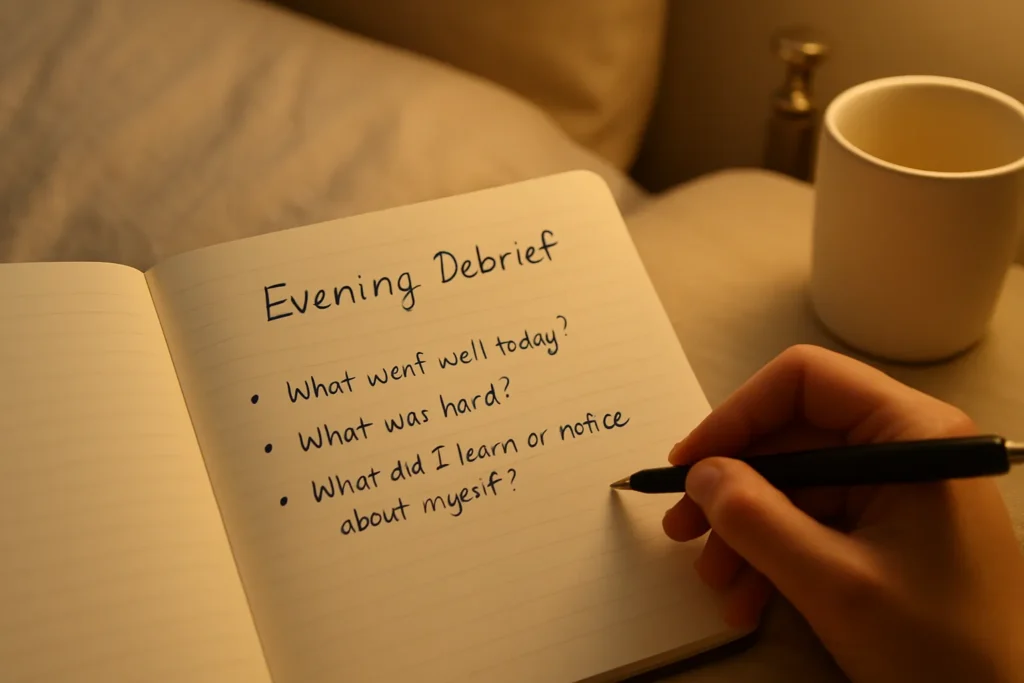 Evening Debrief
• What went well today?
• What was hard?
• What did I learn or notice
about myesif?